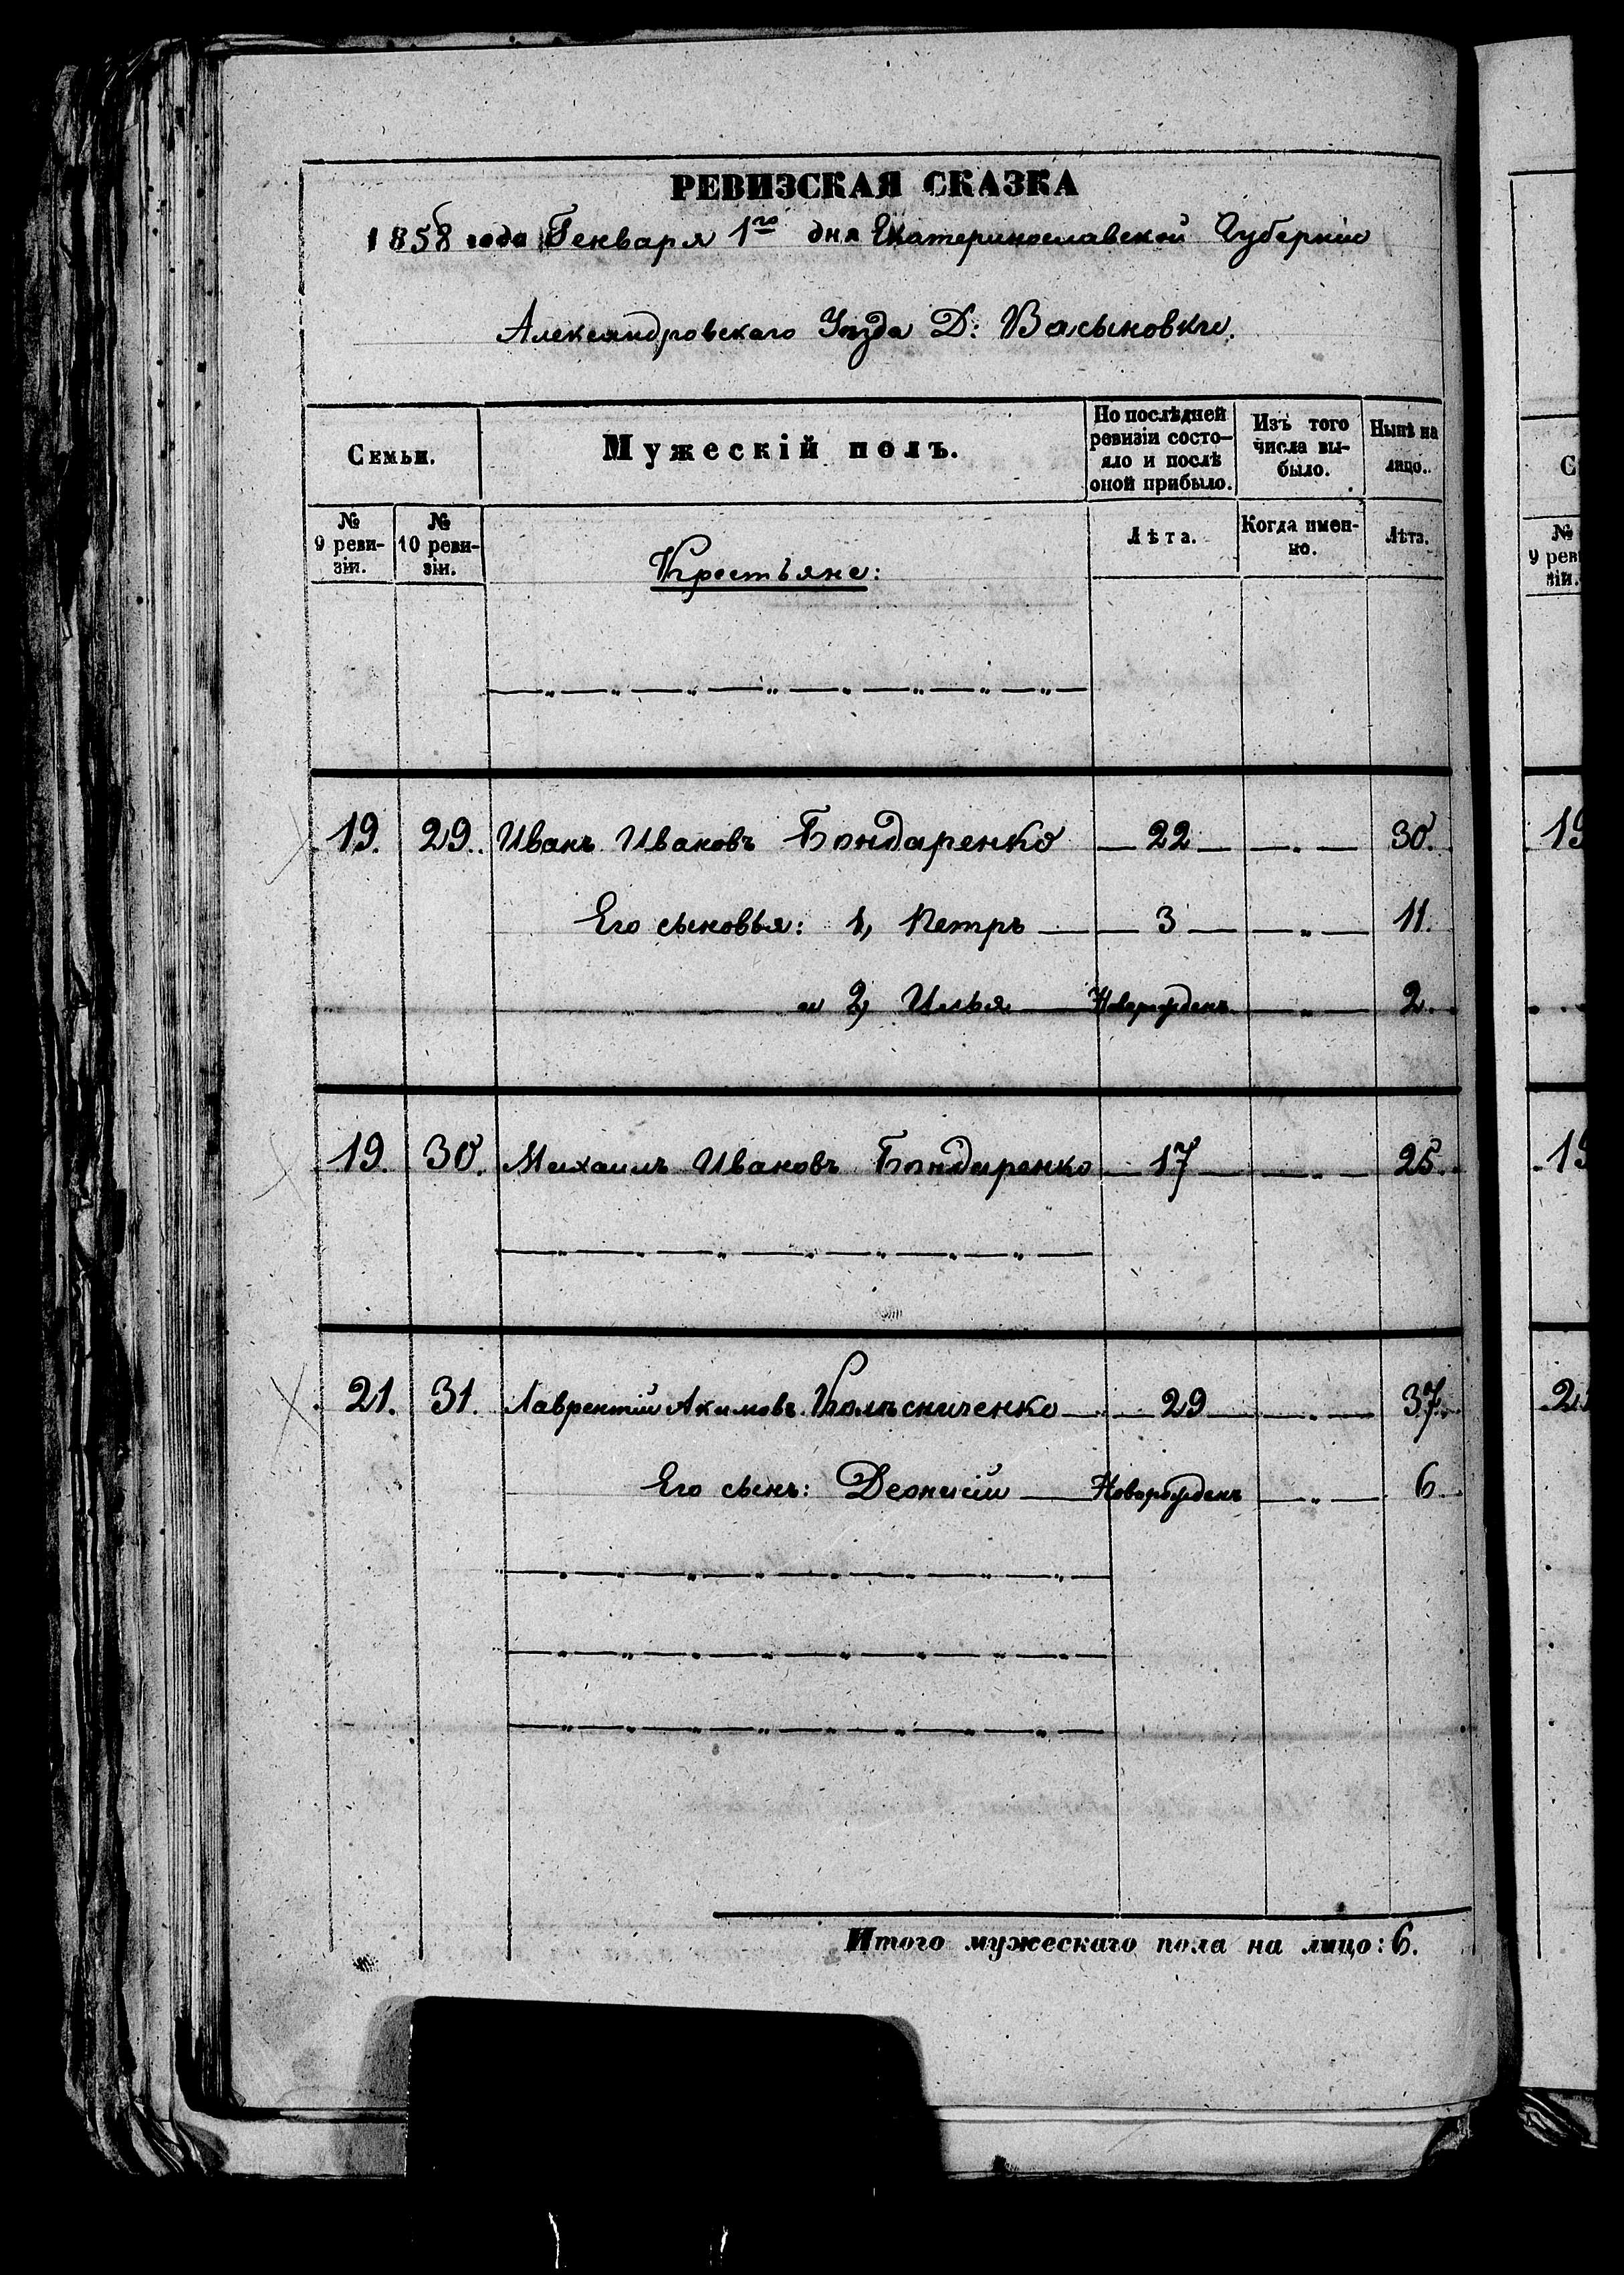 РЕВИЗСКАЯ СКАЗКА
1858 года Генваря 1го дня Екатеринославской Губерніи
Александровскаго Уѣзда Д: Васьиновки.
Семьи.
Мужескій полъ.
По послѣдней ревизіи состо-
яло и послѣ
оной прибыло.
Изъ того
числа вы-
было.
Нынѣ на
лицо.
№
9 реви-
зіи.
№
10 реви-
зіи.
Крестьяне:
Лѣта.
Когда имен-
но.
Лѣта.
19. 29. Иванъ Ивановъ Бондаренко 22 30.
Его сыновья: 1, Петръ 3 11.
и 2, Илья Новорожденъ 2.
19. 30. Михаилъ Ивановъ Бондаренко 17 25.
21. 31. Лаврентій Акимовъ Колѣсниченко 29 37.
Его сынъ: Деонисій Новорожденъ 6.
Итого мужескаго пола на лицо: 6.
С
№
9 рев
зіи.
19
19
21